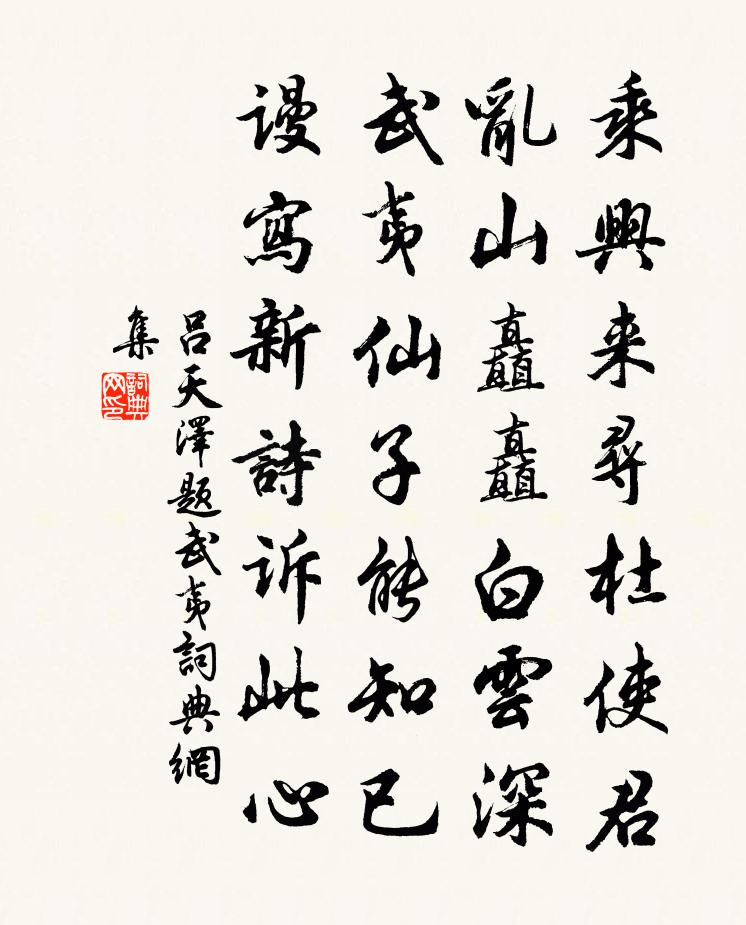 乘興来尋杜使君
亂山矗矗白雲深
武夷仙子能知已
谩寫新詩诉此心
吕天澤题武夷詞典網
集
詞典网印